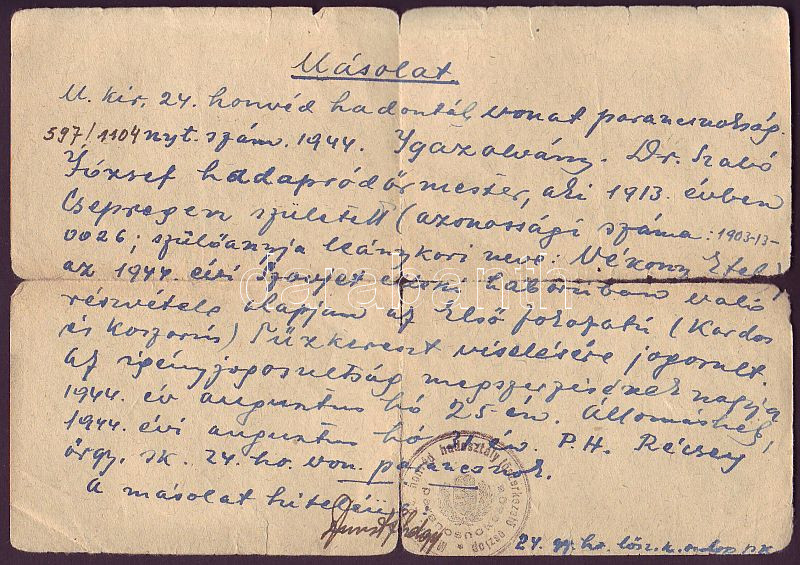 Másolat.
M. kir. 24. honvéd hadosztály vonat parancsnokság.
597/1104 nyt. szám. 1944. Igazolvány. Dr. Szabó
József hadapródőrmester, aki 1913. évben
Csepregen született (azonossági száma: 1903-13-
0026; szülőanyja leánykori neve: Vékony Etel)
az 1944. évi Szovjet elleni háborúban való
részvétele alapján az Első fokozatú (Kardos
és Koszorús) Tűzkereszt viselésére jogosult.
Az igényjogosultság megszerzésének napja
1944. év augusztus hó 25-én. Álláshely,
1944. évi augusztus hó 31-én. P.H. Récsey
őrgy. sk. 24. ho. von. parancsnok.
A másolat hiteléül:
24.
darabanth